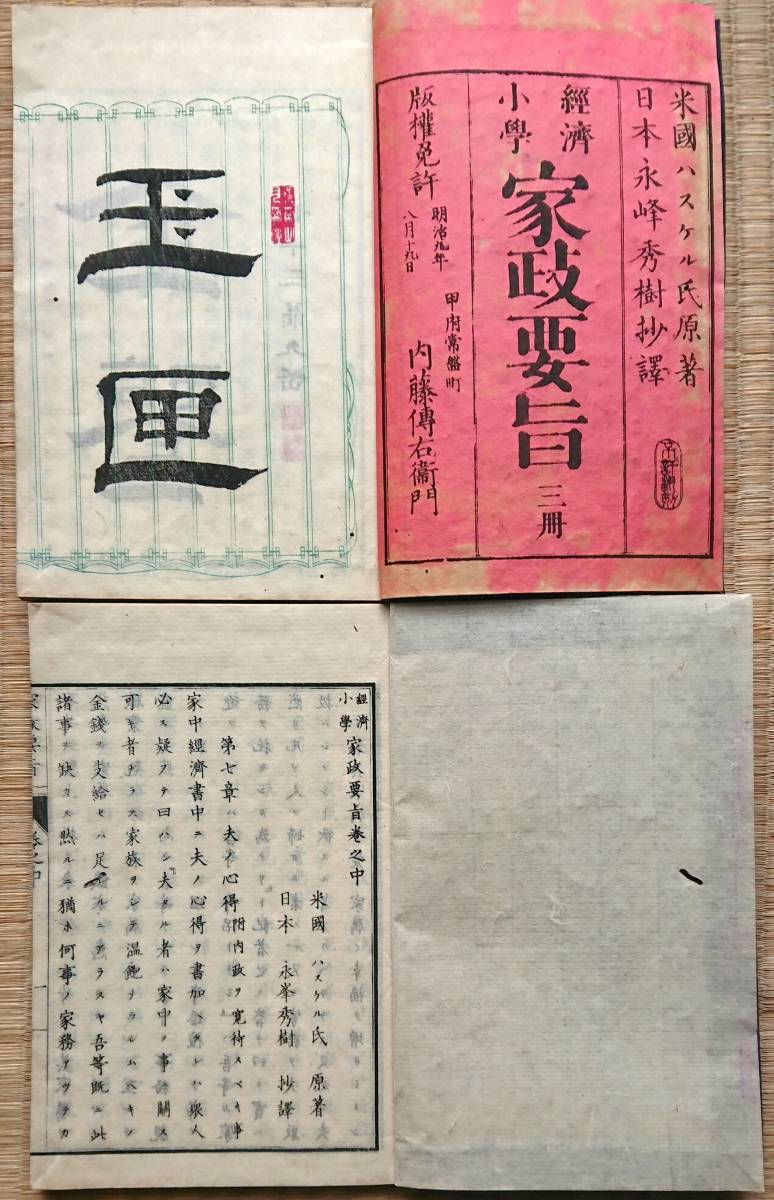 米國ハスケル氏原著
日本永峰秀樹抄譯
經濟
小學
家政要旨 三册
版權免許 明治九年
八月十九日
甲府常盤町
内藤傳右衞門
玉匣
經濟
小學
家政要旨卷之中
米國 ハスケル氏 原著
日本 永峯秀樹 抄譯
第七章ハ夫ノ心得 附内政ヲ寛待スベキ事
家中經濟書中ニ夫ノ心得ヲ書加ヘタレハ衆人
必ス疑フテ曰ハン夫タル者ハ家中ノ事ニ關ス
可キ者ナラス家族ヲシテ温飽ナラシムヘキノ
金錢ヲ支給セハ足レルニアラスヤ吾等既ニ此
諸事ヲ缺カス然ルニ猶ホ何事ノ家務アツテカ